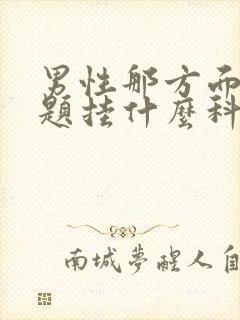 男性那方面
題挂什麼科
南城夢醒人自